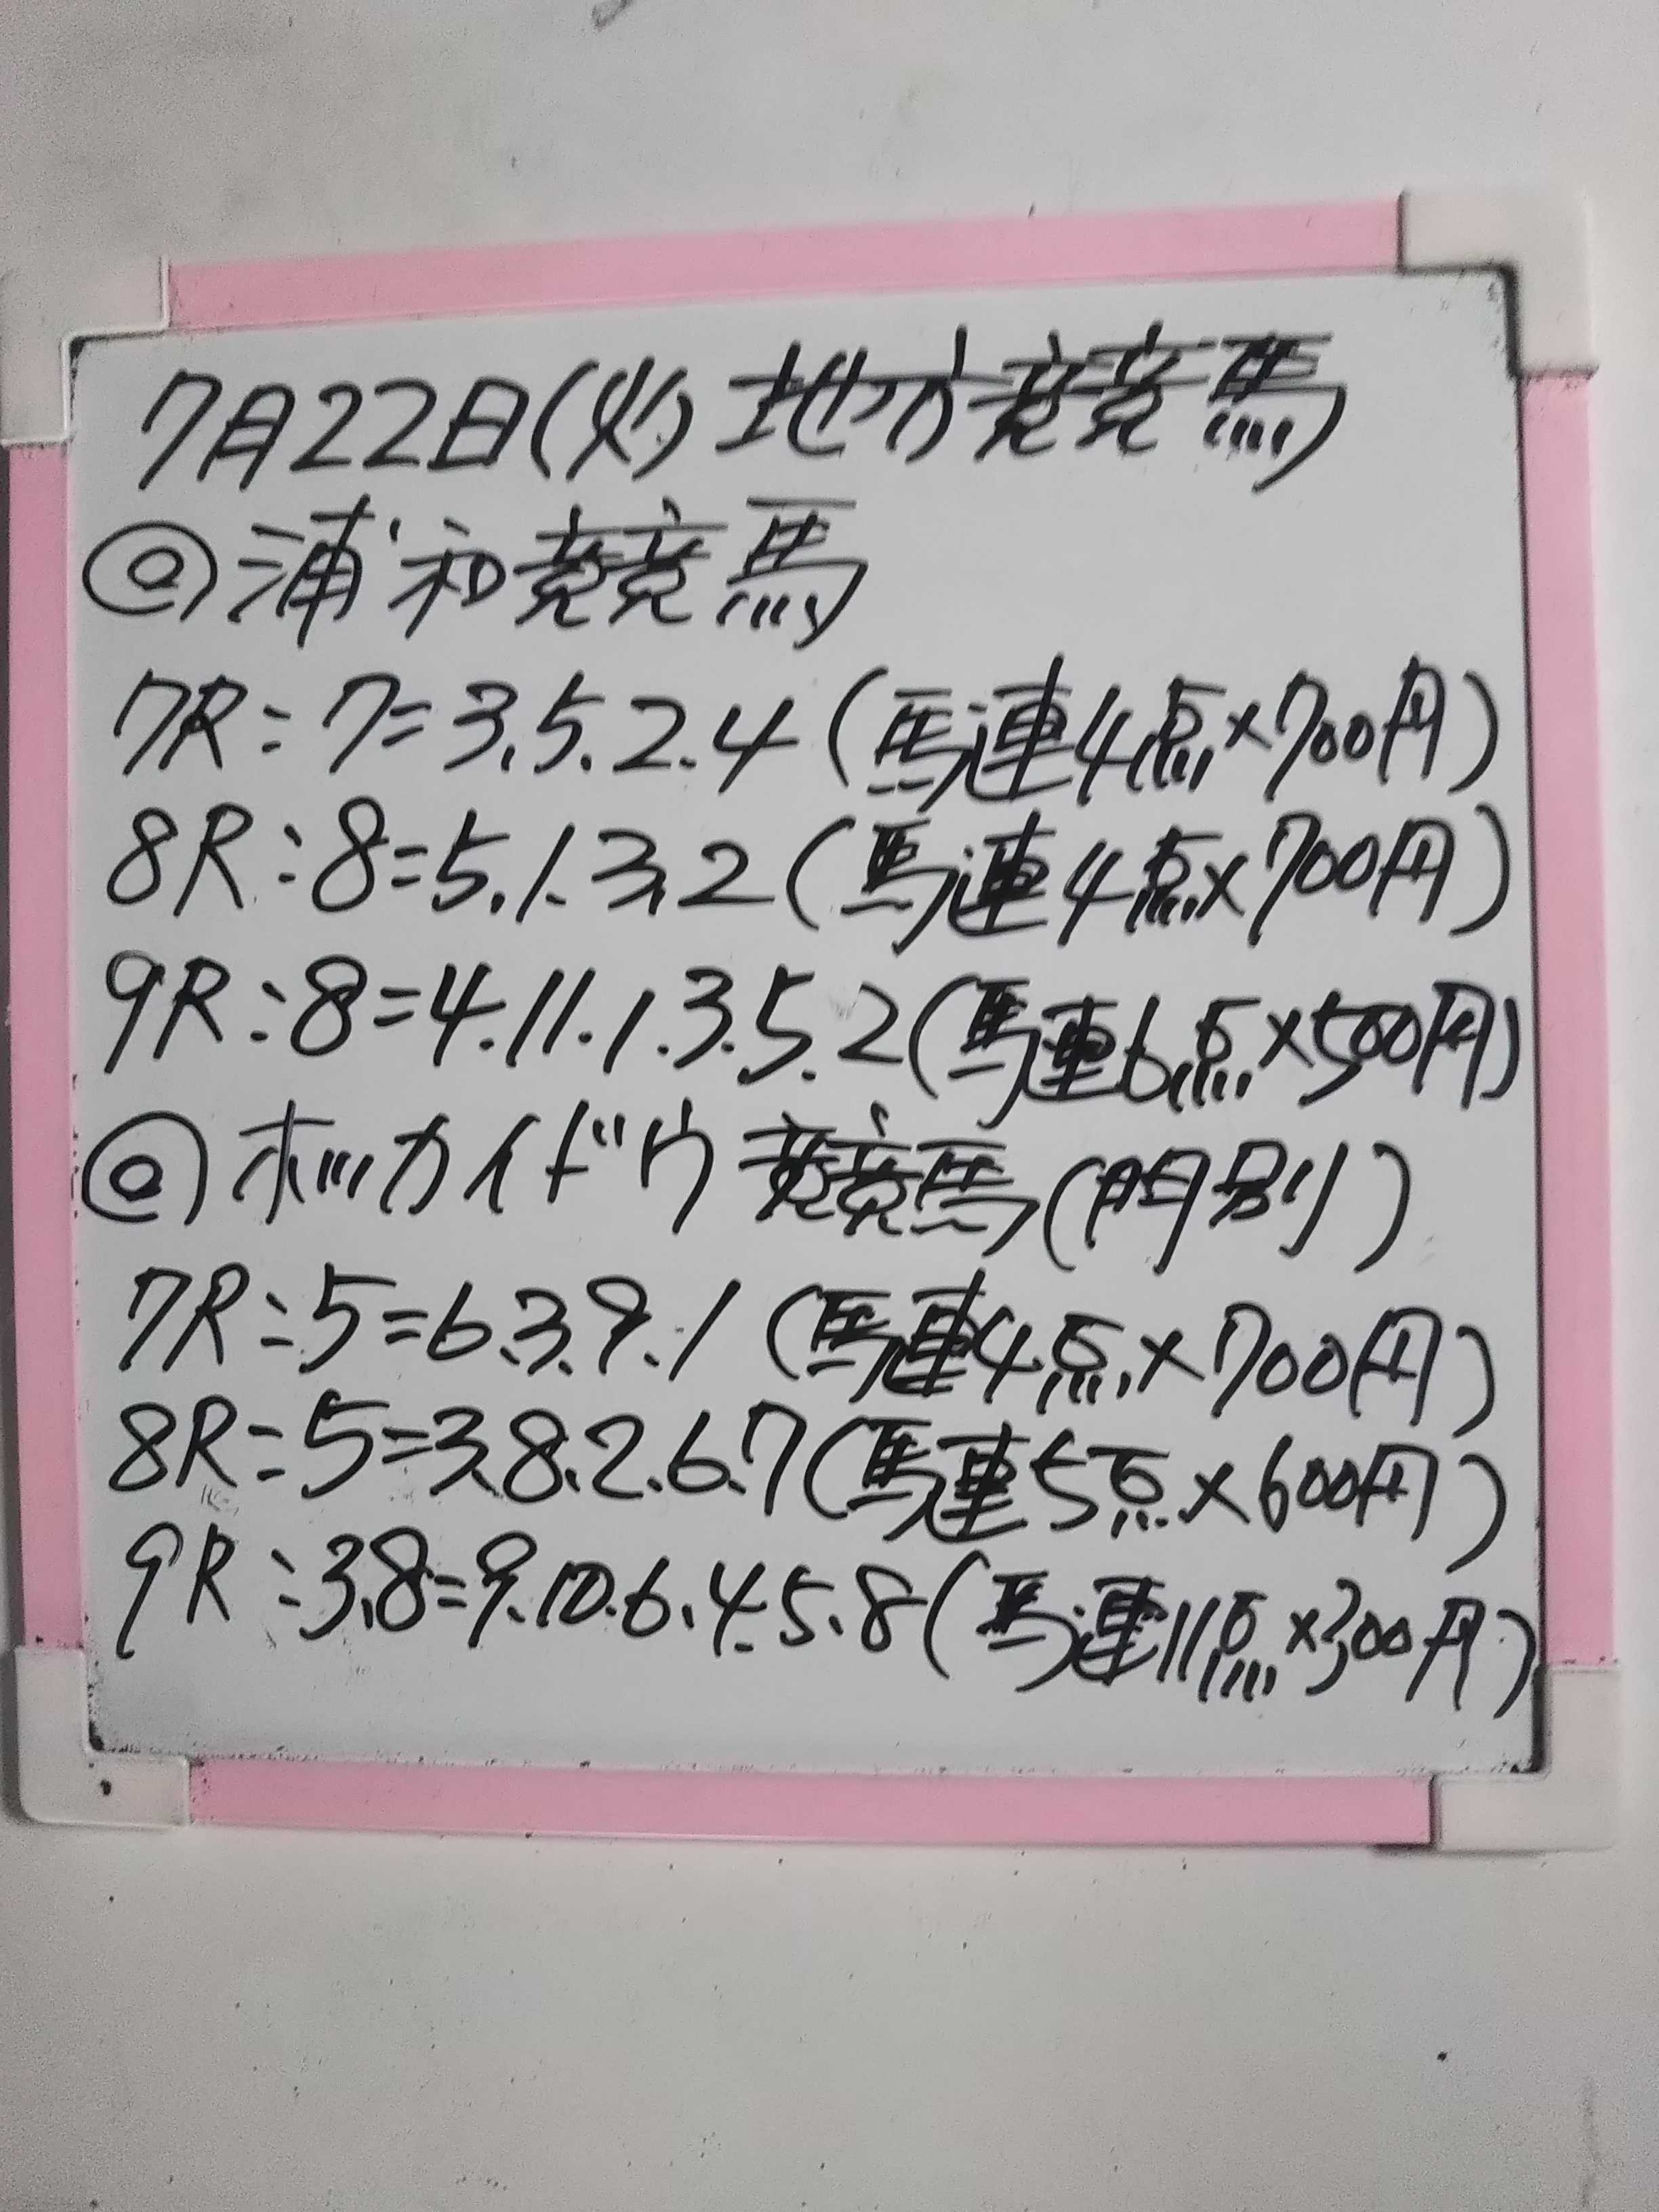 7月22日(火)地方競馬
◎浦和競馬
7R:7=3.5.2.4(馬連4点×700円)
8R:8=5.1.3.2(馬連4点×700円)
9R:8=4.11.1.3.5.2(馬連6点×500円)
◎ホッカイドウ競馬(門別)
7R:5=6.3.9.1(馬連4点×700円)
8R:5=3.8.2.6.7(馬連5点×600円)
9R:3.8=9.10.6.4.5.8(馬連11点×300円)